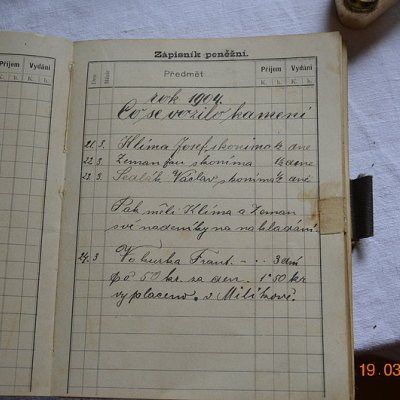 Příjem Vydání
K. h. K. h.
Zápisník peněžní.
Den Měsíc Předmět Příjem Vydání
K. h. K. h.
rok 1904.
Co se vozilo kamení
21. 3. Klíma Josef s konima ½ dne
22. 3. Zeman Jan s koníma 1½ dne
23. 3. Sedlák Václav s koníma ½ dne
Pak měli Klíma a Zeman
své nadeníky na nakládání.
24. 3 Vokurka Frant. - - 3 dni
po 50 kr. za den. 1·50 kr
vyplaceno. v Militínově.
19.03